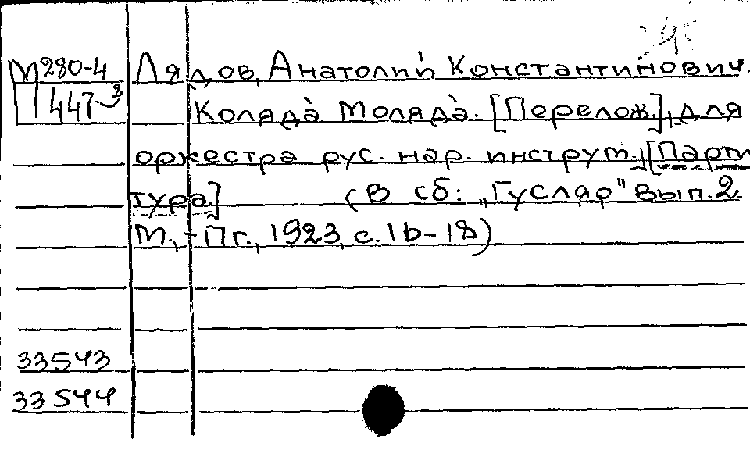 М 280-4 Лядов, Анатолий Константинович.
447 Коляда Моляда. [Перелож.] для
оркестра рус. нар. инструм. [Парти
тура.] (В сб: „Гусляр" вып. 2.
М.,-Пг., 1923, с. 16-18)
33543
33544